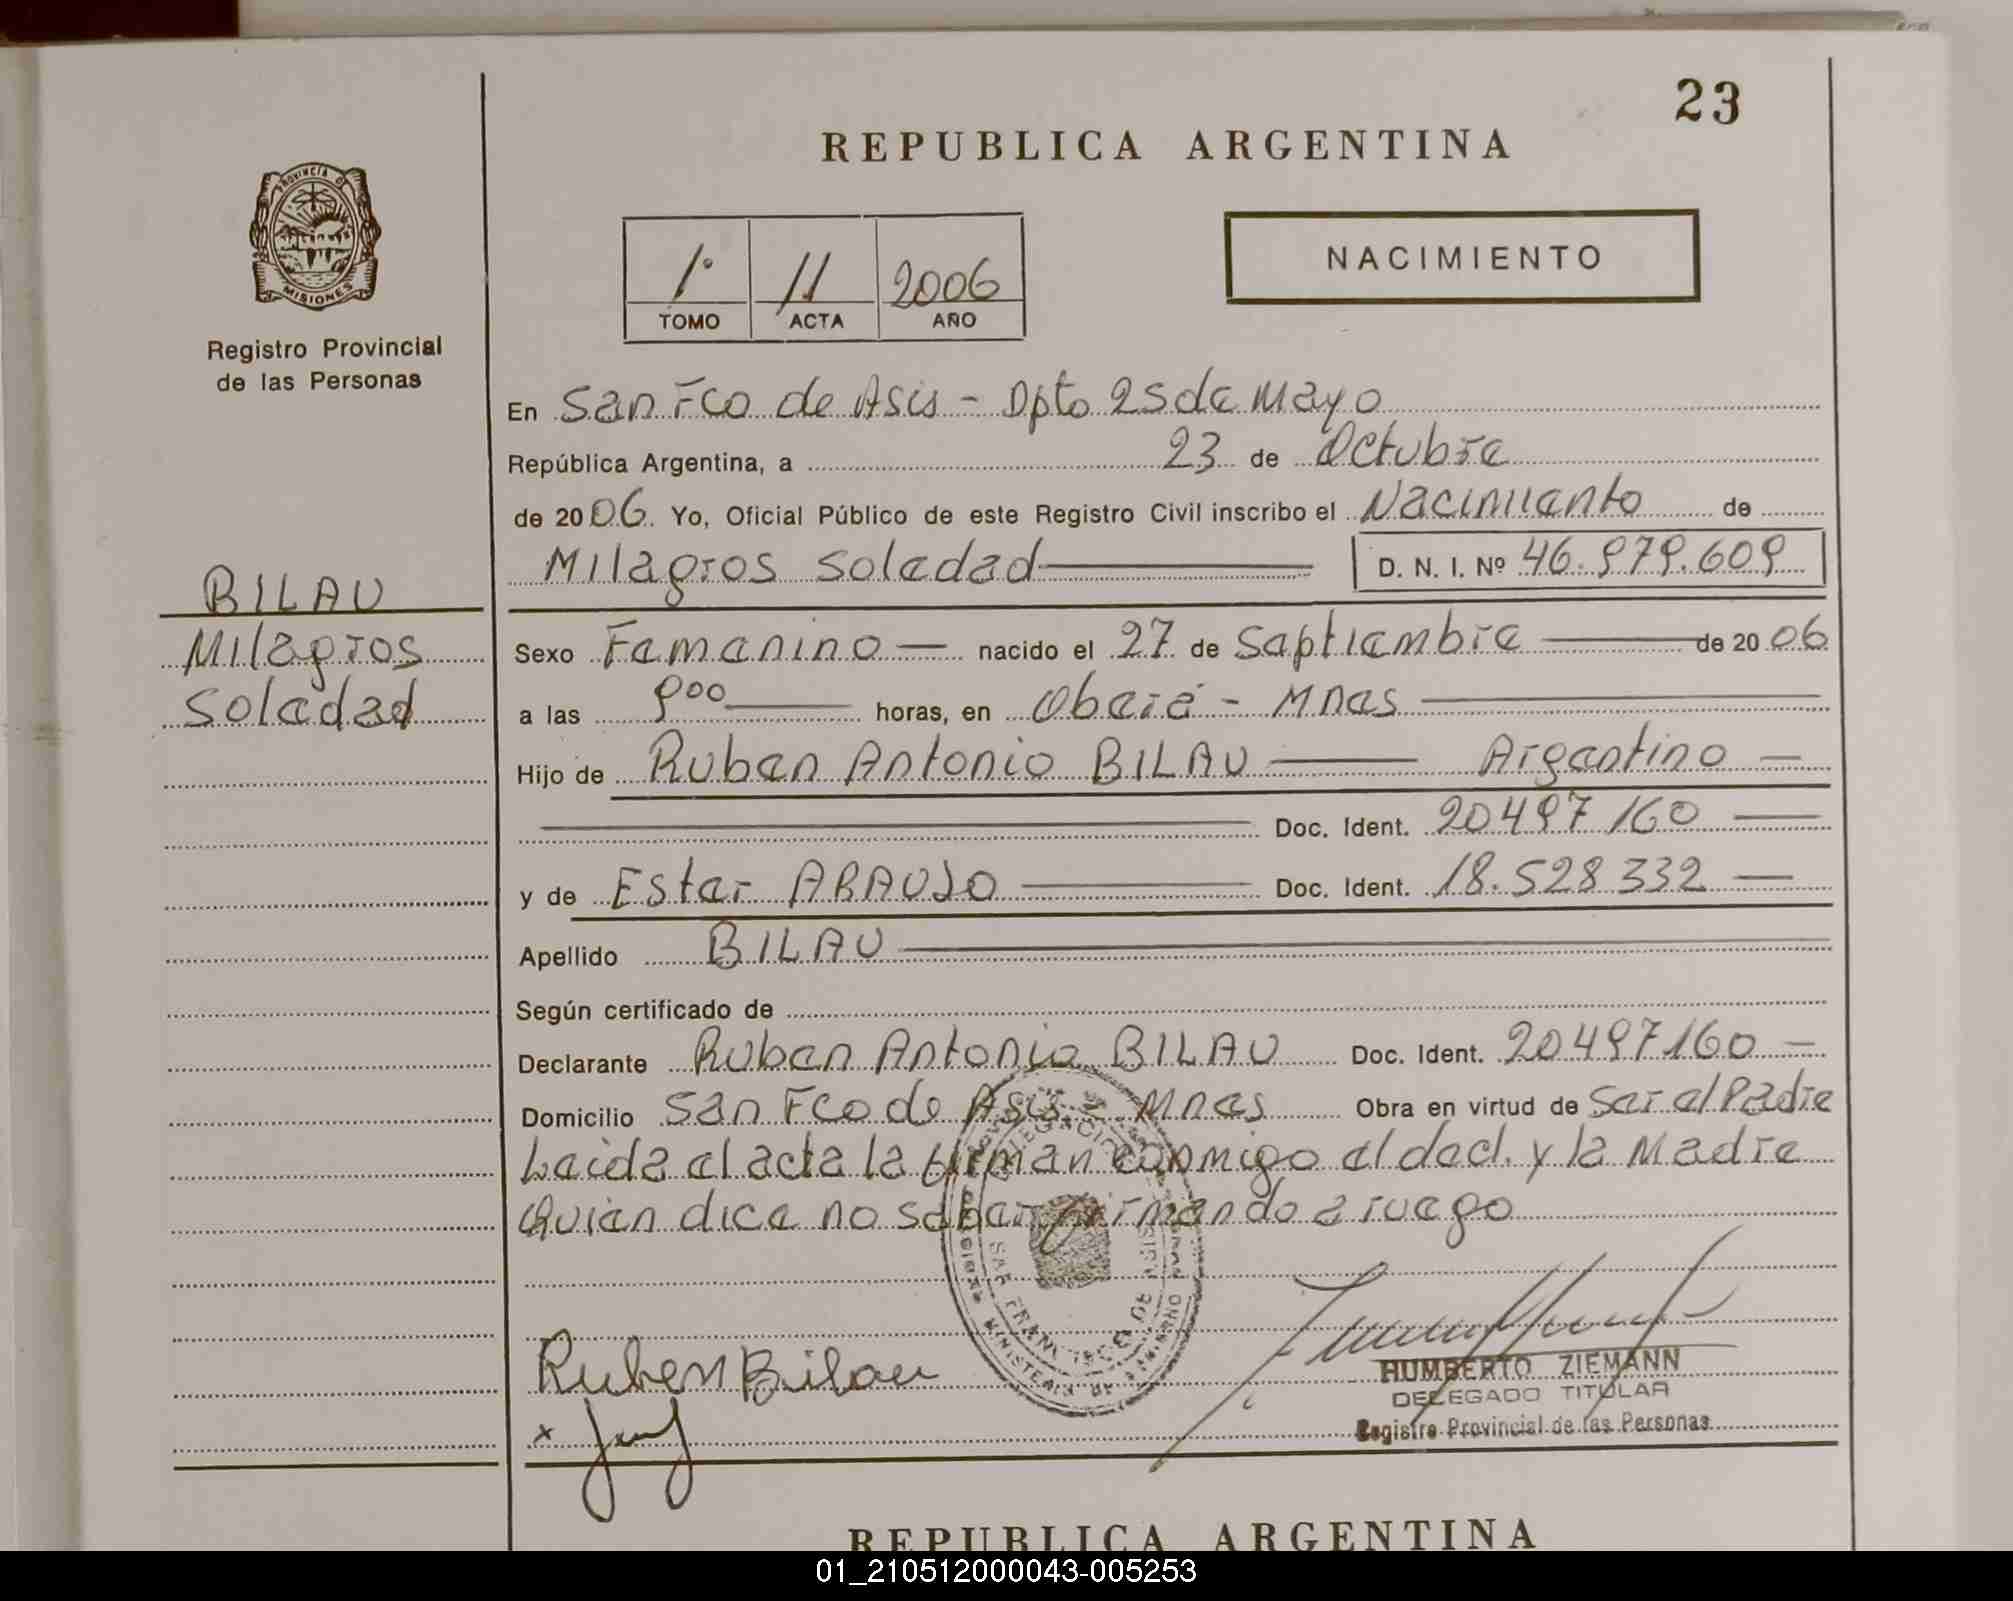 23
REPUBLICA ARGENTINA
PROVINCIA DE
MISIONES
Registro Provincial
de las Personas
1º 11 2006
TOMO ACTA AÑO
NACIMIENTO
En San Fco de Asis - Dpto 25 de Mayo
República Argentina, a 23 de Octubre
de 2006. Yo, Oficial Público de este Registro Civil inscribo el Nacimiento de
Milagros Soledad D. N. I. Nº 46.979.609
BILAU
Milagros
Soledad
Sexo Femenino — nacido el 27 de Septiembre de 2006
a las 9⁰⁰ horas, en Oberá - Mnes
Hijo de Ruben Antonio BILAU Argentino
Doc. Ident. 20497160
y de Ester ARAUJO Doc. Ident. 18.528.332
Apellido BILAU
Según certificado de
Declarante Ruben Antonio BILAU Doc. Ident. 20497160
Domicilio San Fco de Asis - Mnes Obra en virtud de Ser el Padre
Leida el acta la firman conmigo el decl. y la Madre
Quien dice no saber firmando a ruego
Ruben Bilau
x
HUMBERTO ZIEMANN
DELEGADO TITULAR
Registro Provincial de las Personas
REPUBLICA ARGENTINA
01_210512000043-005253